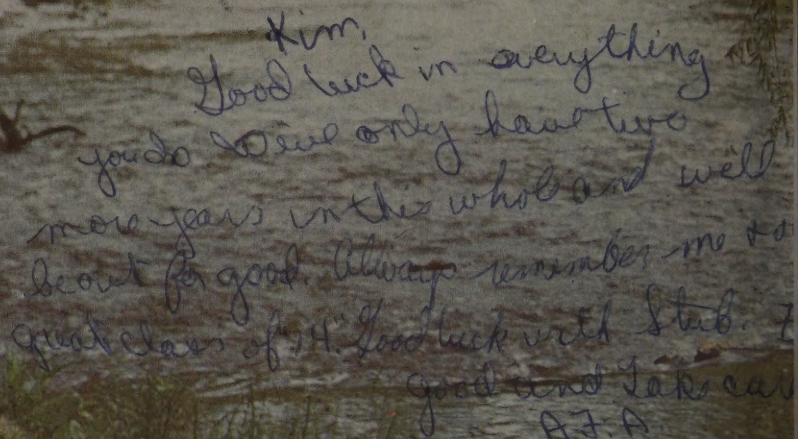 Kim,
Good luck in everything
you do We've only have two
more years in this whole and we'll
be out for good. Always remember me
great class of "74". Good luck with Stub.
good and Take care
A.F.A.